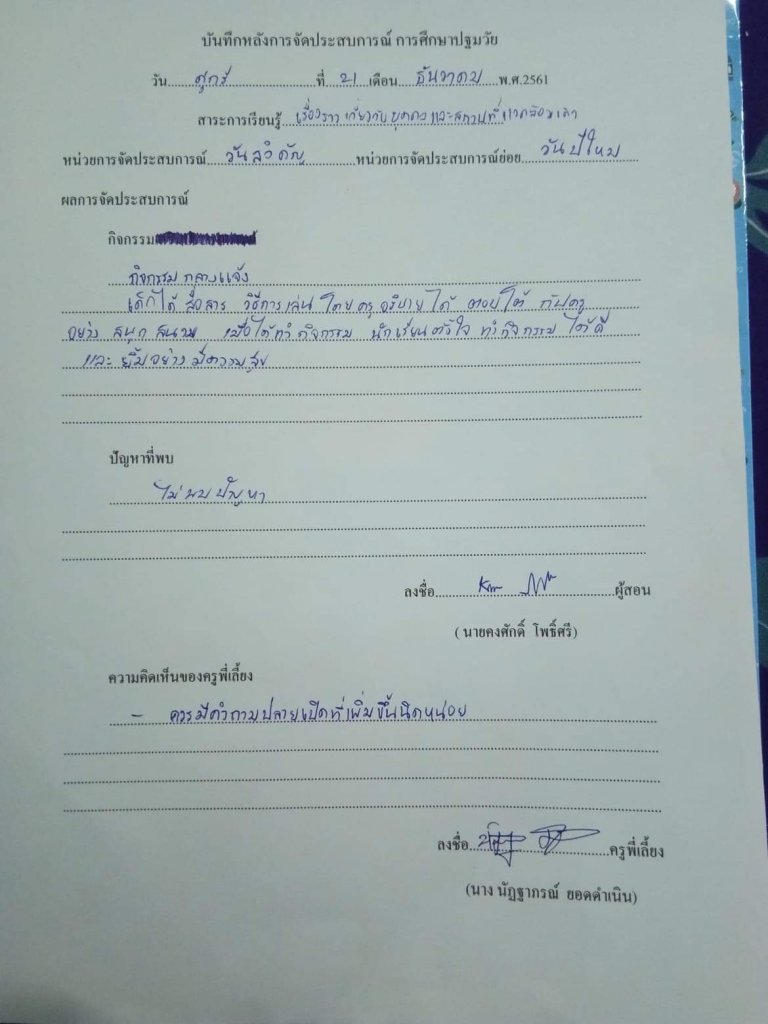 บันทึกหลังการจัดประสบการณ์ การศึกษาปฐมวัย
วัน ศุกร์ ที่ 21 เดือน ธันวาคม พ.ศ.2561
สาระการเรียนรู้ เรื่องราวเกี่ยวกับบุคคลและสถานที่แวดล้อมเด็ก
หน่วยการจัดประสบการณ์ วันสำคัญ หน่วยการจัดประสบการณ์ย่อย วันปีใหม่
ผลการจัดประสบการณ์
กิจกรรม
กิจกรรม กลางแจ้ง
เด็กได้ สื่อสาร วิธีการเล่น โดยครูอธิบายได้ ตอบโต้ กับครู
อย่าง สนุก สนาน เมื่อได้ทำกิจกรรม นักเรียนตั้งใจ ทำกิจกรรม ได้ดี
และ ยิ้มอย่าง มีความสุข
ปัญหาที่พบ
ไม่พบปัญหา
ลงชื่อ ผู้สอน
( นายคงศักดิ์ โพธิ์ศรี)
ความคิดเห็นของครูพี่เลี้ยง
- ควรมีคำถามปลายเปิดที่เพิ่มขึ้นนิดหน่อย
ลงชื่อ ครูพี่เลี้ยง
(นาง นัฏฐาภรณ์ ยอดดำเนิน)